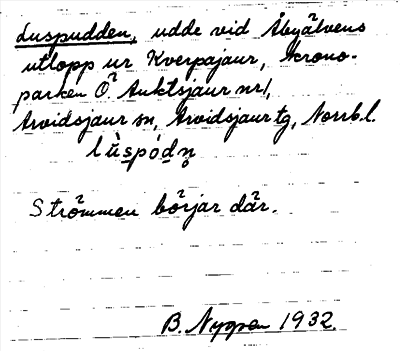 Luspudden, udde vid Åbyälvens
utlopp ur Kverpajaur, krono-
parken Ö. Auktsjaur nr 1,
Arvidsjaur sn, Arvidsjaur tg, Norrb.l.
lùspódn̥
Strömmen börjar där.
B. Nygren 1932.